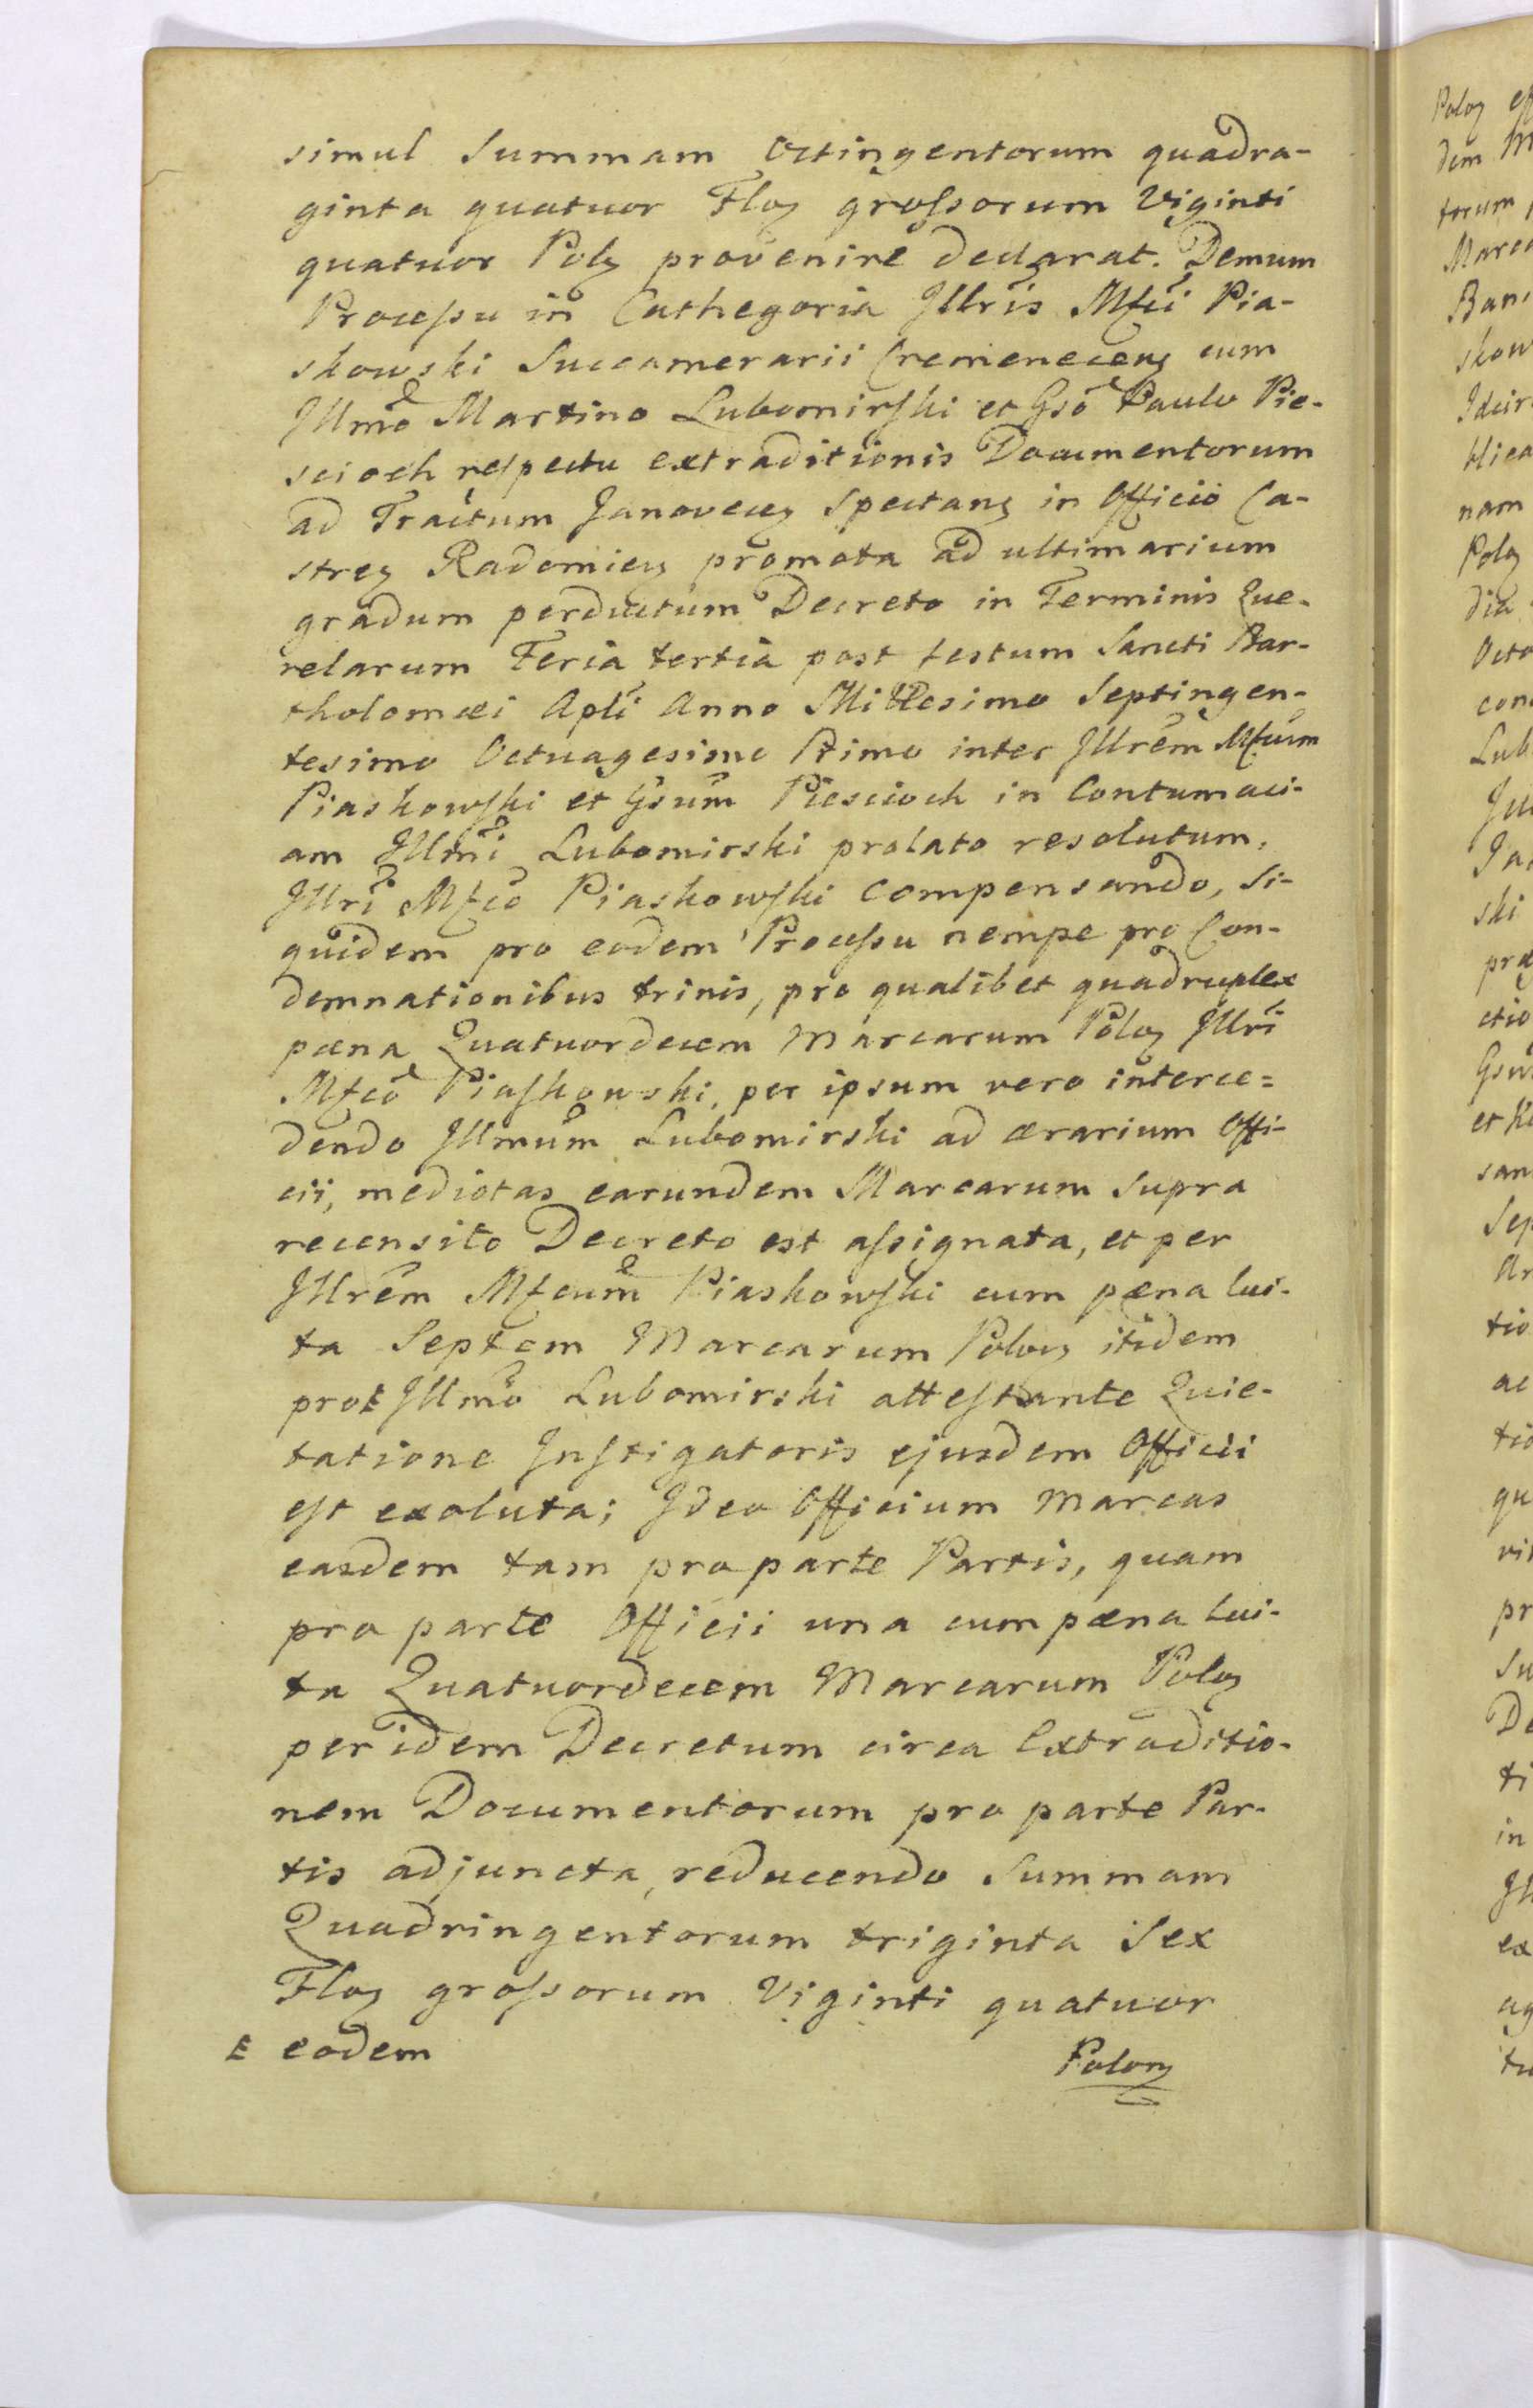 simul Summam Octingentorum quadra-
ginta quatuor Floꝫ grossorum Viginti
quatuor Polꝫ provenire declarat. Demum
Processu in Cathegoria Jllris Mfci Pia-
skowski Succamerarii Cremenecenꝫ cum
Jllmo Martino Lubomirski et Gso Paulo Pie-
scioch respectu extraditionis Documentorum
ad Tractum Janoveceꝫ Spectanꝫ in Officio Ca-
streꝫ Radomieꝫ promota ad ultimarium
gradum perductum Decreto in Terminis Que-
relarum Feria tertia post festum Sancti Bar-
tholomæi Apli Anno Millesimo Septingen-
tesimo Octuagesimo Primo inter Jllrem Mfcum
Piaskowski et Gsum Piescioch in Contumaci-
am Jllmi Lubomirski prolato resolutum,
Jllri Mfco Piaskowski compensando, Si-
quidem pro eodem Processu nempe pro Con-
demnationibus trinis, pro qualibet quadruplex
pæna Quatuordecem Marcarum Poloꝫ Jllri
Mfco Piaskowski, per ipsum vero interce=
dendo Jllmum Lubomirski ad ærarium Offi-
cii, medietas earundem Marcarum supra
recensito Decreto est assignata, et per
Jllrem Mfcum Piaskowski cum pæna lui-
ta Septem Marcarum Polonꝫ itidem
pro Jllmo Lubomirski attestante Quie-
tatione Instigatoris ejusdem Officii
est exoluta; Jdeo Officium Marcas
easdem tam pro parte Partis, quam
pro parte Officii una cum pæna lui-
ta Quatuordecem Marcarum Poloꝫ
per idem Decretum circa Extraditio-
nem Documentorum pro parte Par-
tis adjuncta, reducendo Summam
Quadringentorum triginta Sex
Floꝫ grossorum Viginti quatuor
E eodem
Polonꝫ